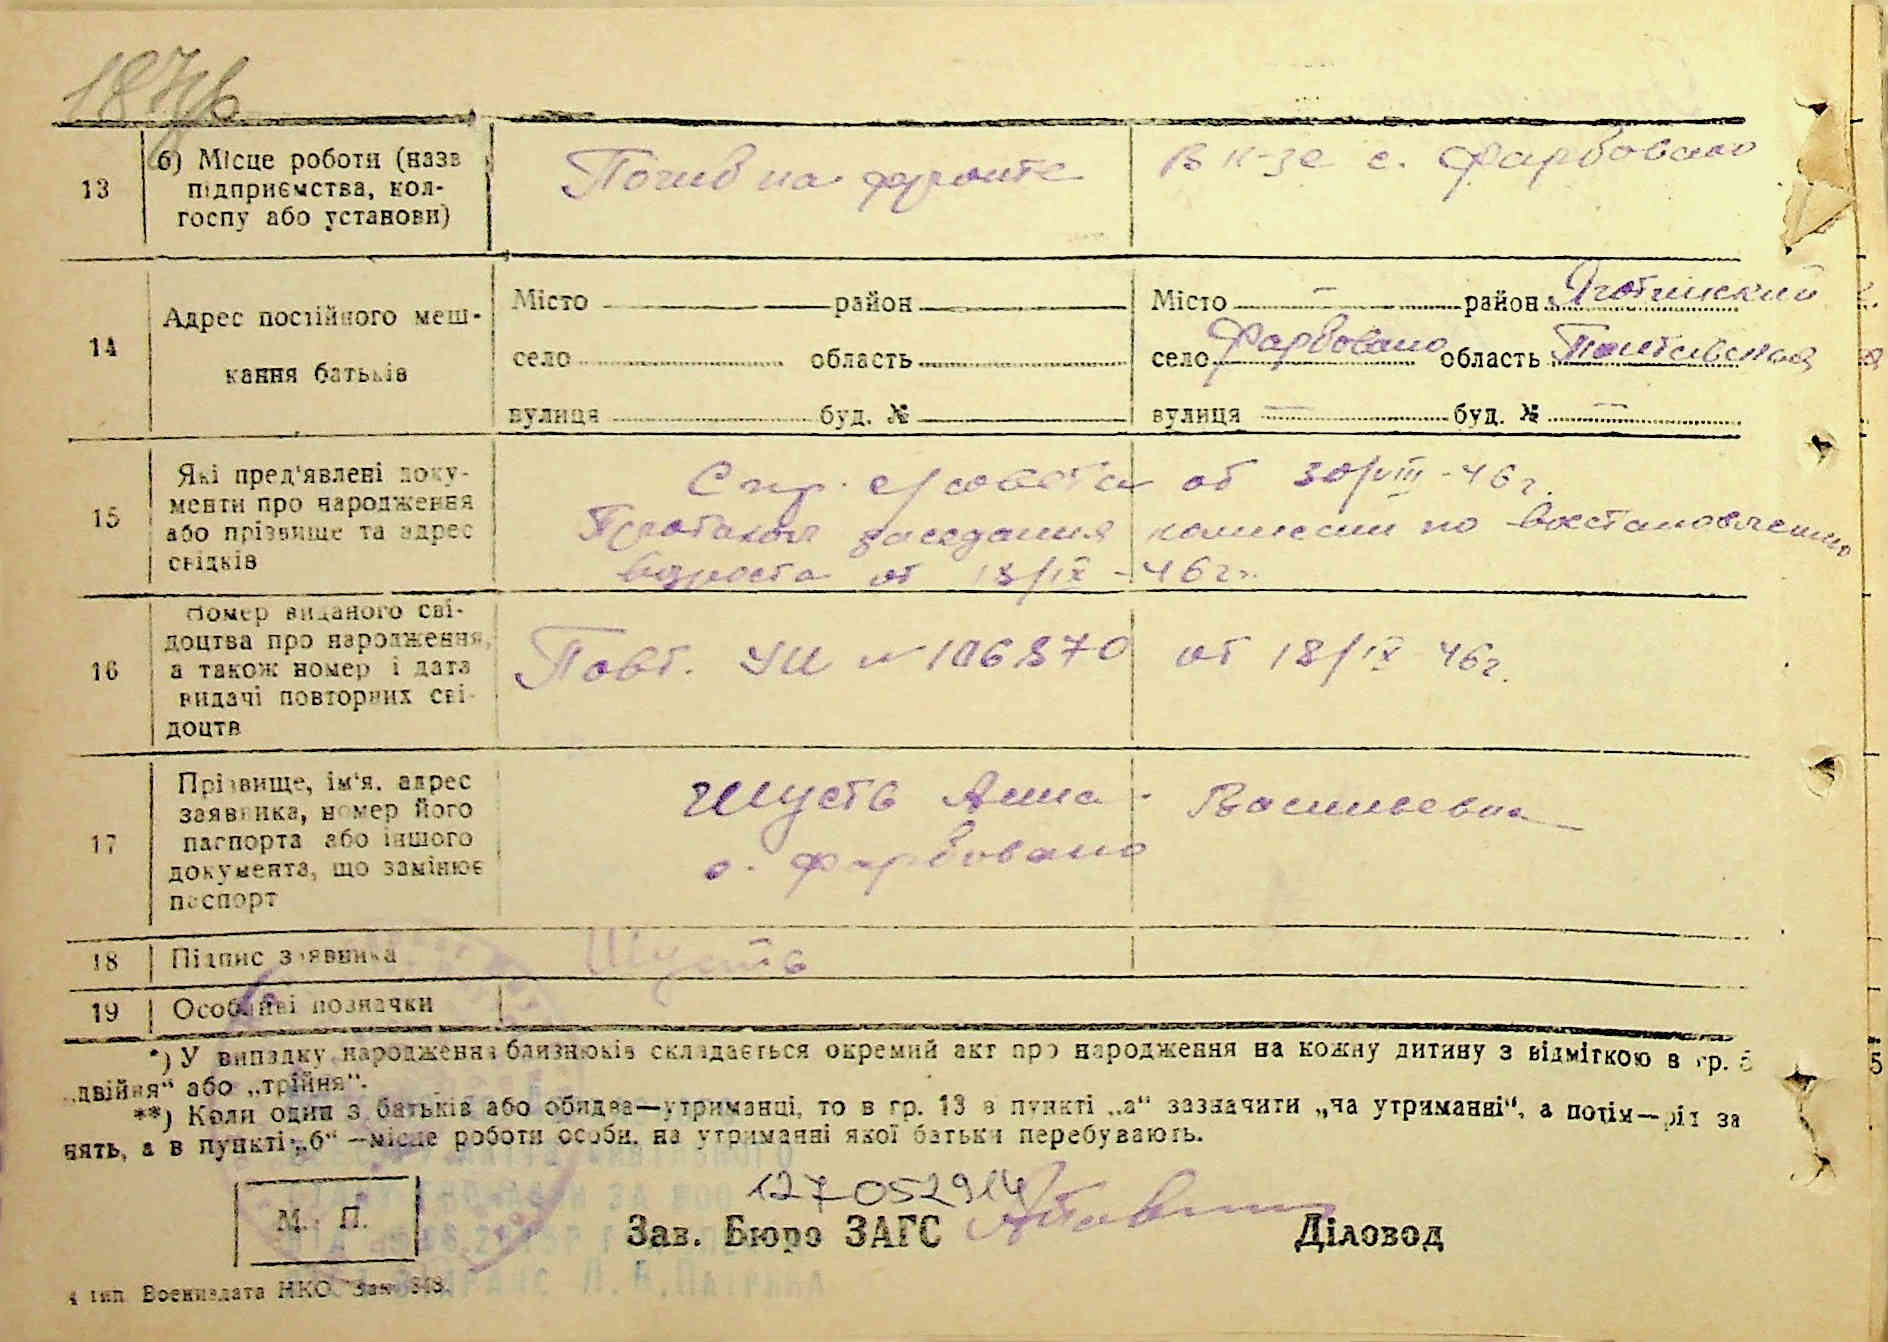 187
13
б) Місце роботи (назв
підприємства, кол-
госпу або установи)
Погив на фронте
В к-зе с. Фарбовано
14
Адрес постійного меш-
кання батьків
Місто район
село область
вулиця буд. №
Місто — район Яготинский
село Фарбовано область Полтавская
вулиця — буд. № —
15
Які пред'явлені доку-
менти про народження
або прізвище та адрес
свідків
Спр. с/совета от 30/VIII-46 г.
Протокол заседания комиссии по восстановлению
возроста от 18/IX-46 г.
16
Номер виданого сві-
доцтва про народження,
а також номер і дата
видачі повторних сві-
доцтв
Повт. УИ № 106870 от 18/IX 46 г.
17
Прізвище, ім'я, адрес
заявника, номер його
паспорта або іншого
документа, що замінює
паспорт
Шусть Анна Васильевна
с. Фарбовано
18
Підпис заявника
Шусть
19
Особливі позначки
*) У випадку народження близнюків складається окремий акт про народження на кожну дитину з відміткою в гр. 5
„двійня“ або „трійня“.
**) Коли один з батьків або обидва—утриманці, то в гр. 13 в пункті „а“ зазначити „на утриманні“, а потім—рід за
нять, а в пункті „б“ —місце роботи особи, на утриманні якої батьки перебувають.
127052914
М. П.
Зав. Бюро ЗАГС
Діловод
4 тип. Воениздата НКО. Зак. 848.